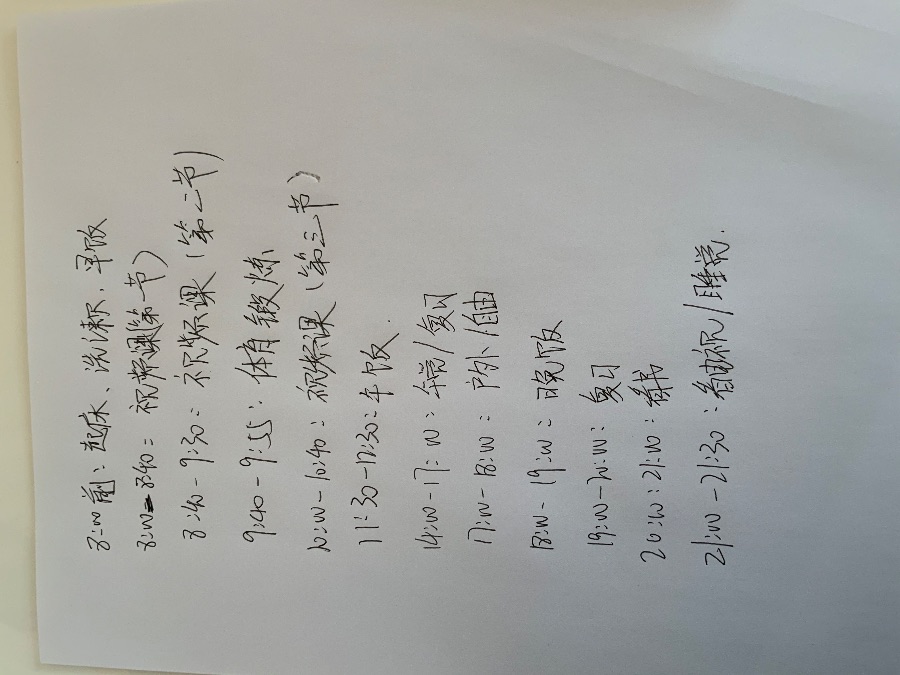 8:00前：起床、洗漱、早饭
8:00-8:40：视频课(第一节)
8:40-9:30：视频课（第二节）
9:40-9:55：体育锻炼
10:00-10:40：视频课（第三节）
11:30-12:30：午饭.
14:00-17:00：午觉/复习
17:00-18:00：户外/自由
18:00-19:00：晚饭
19:00-20:00：复习
20:00:21:00：看书
21:00-21:30：看电视/睡觉.